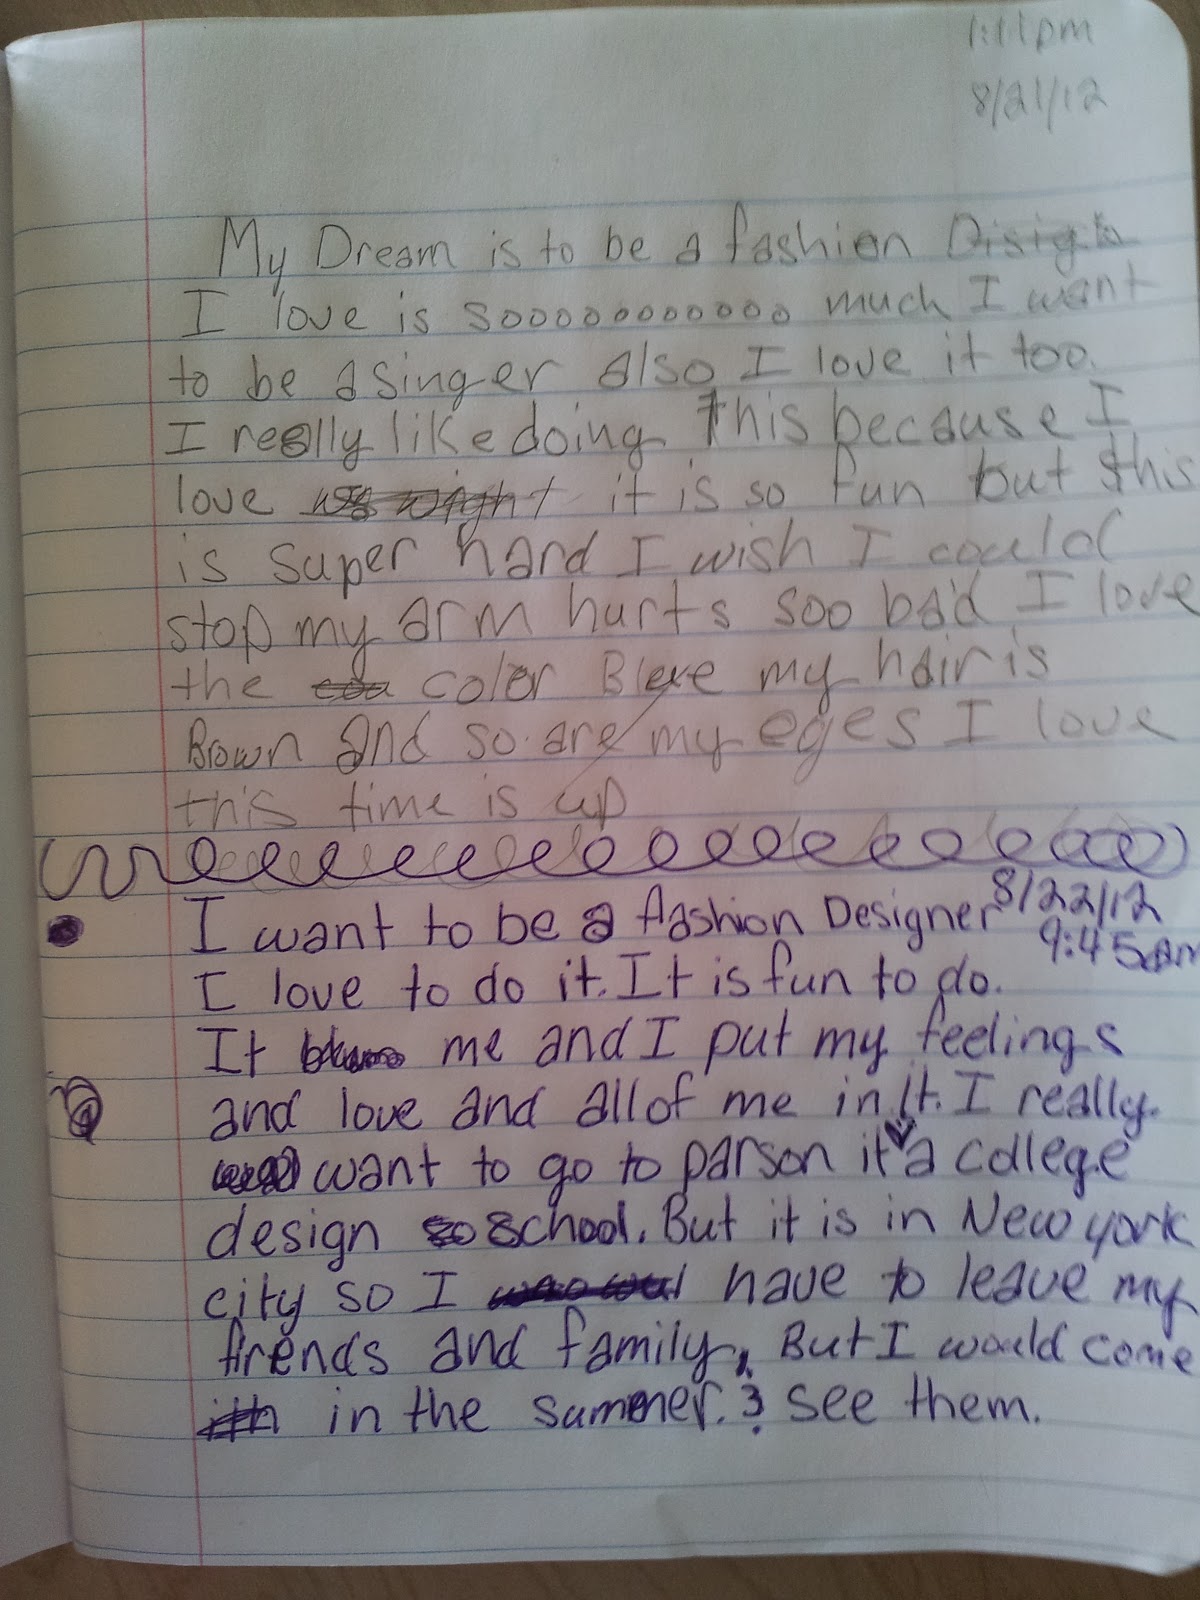 1:11pm
8/21/12
My Dream is to be a fashion
I love is sooooooooooo much I want
to be a singer also I love it too.
I really like doing this because I
love it is so fun but this
is super hard I wish I could
stop my arm hurts soo bad I love
the color my hair is
Brown and so are my eyes I love
this time is up
I want to be a fashion Designer 8/22/12
9:45am
I love to do it. It is fun to do.
It me and I put my feelings
and love and all of me in It. I really
want to go to parson it a college
design school. But it is in New york
city so I have to leave my
firends and family. But I would come
in the summer. & see them.